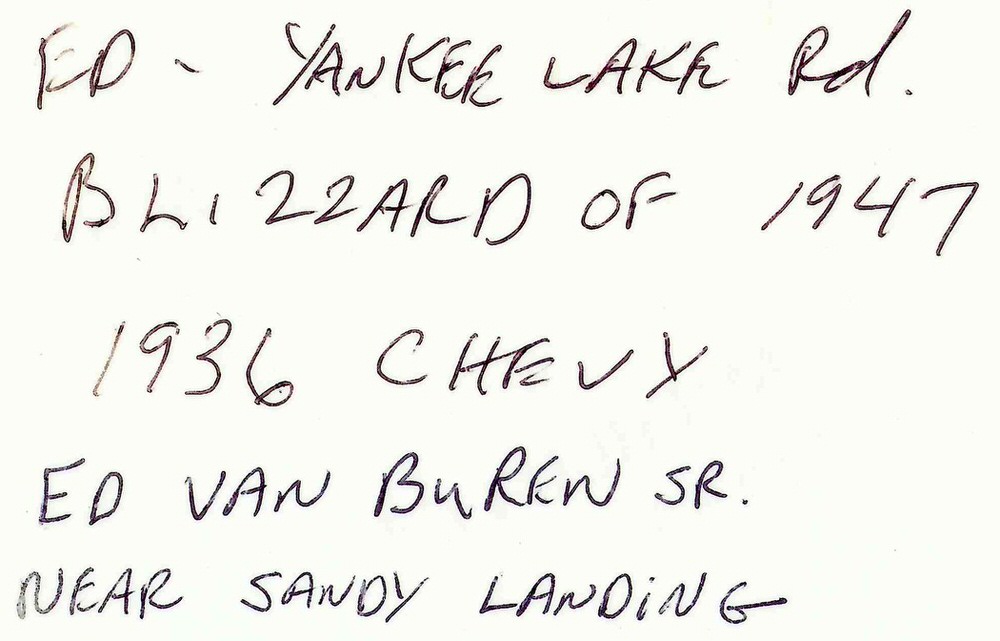 ED - YANKEE LAKE Rd.
BLIZZARD OF 1947
1936 CHEVY
ED VAN BUREN SR.
NEAR SANDY LANDING